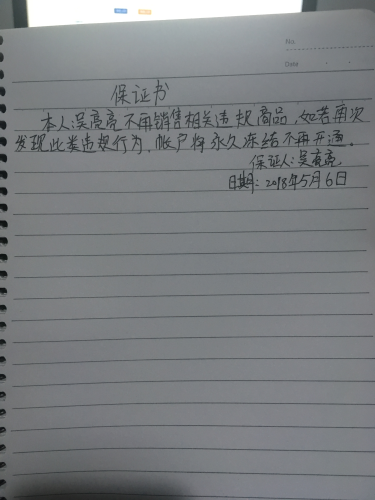 No.
Date
保证书
本人:吴亮亮不再销售相关违规商品,如若再次
发现此类违规行为,帐户将永久冻结不再开通。
保证人:吴亮亮
日期:2018年5月6日